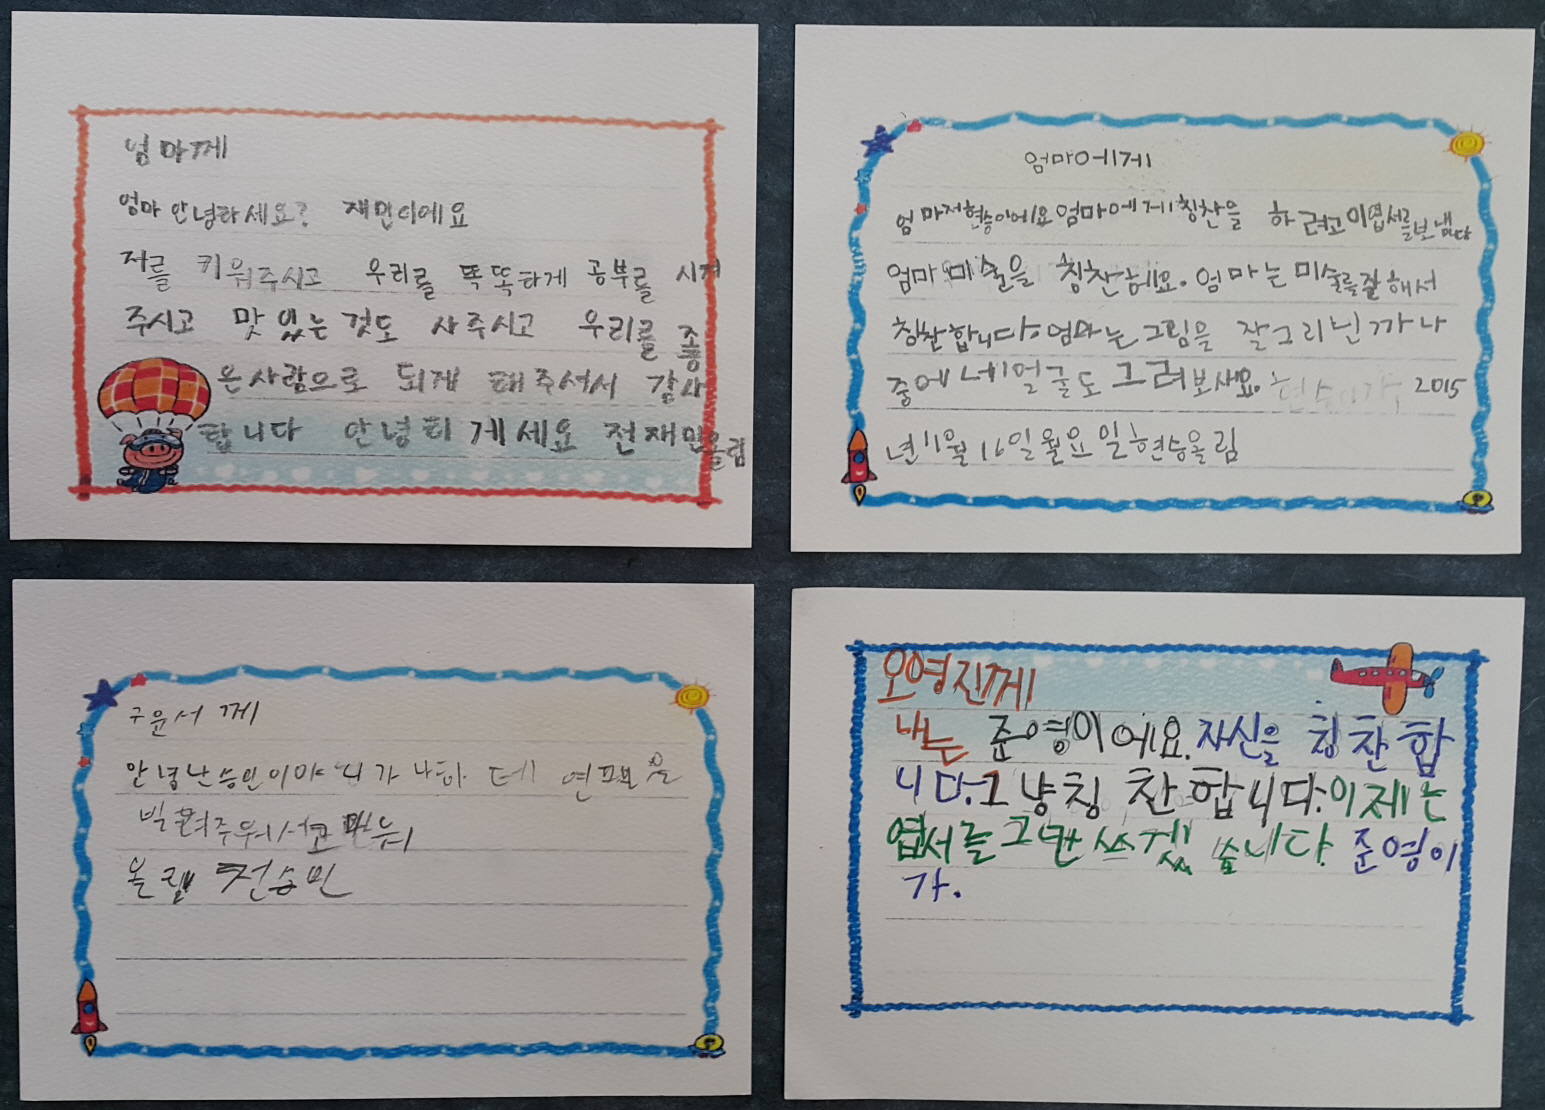 엄마께
엄마 안녕하세요? 재민이에요
저를 키워주시고 우리를 똑똑하게 공부를 시켜
주시고 맛있는것도 사주시고 우리를 좋
은사람으로 되게 해주셔서 감사
합니다 안녕히 계세요 전재민올림
엄마에게
엄마저현승이에요엄마에게칭찬을 하려고이엽서를보냄니다
엄마 미술을 칭찬헤요. 엄마는 미술를잘해서
칭찬합니다. 엄마는그림을 잘그리닌까나
중에 네얼굴도 그려보세요. 현승이가 2015
년11월16일월요일현승올림
구윤서 께
안녕난승민이야 니가 나하 테 연필을
빌려주워서고마워
올림 전승민
오영진께
나는 준영이에요. 자신을 칭찬합
니다.그냥칭찬합니다.이제는
엽서를그만쓰겠습니다. 준영이
가.